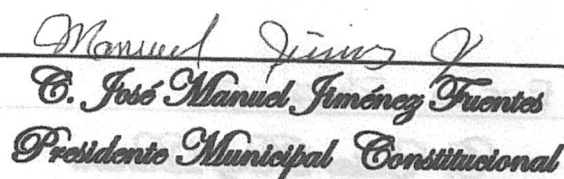 Manuel Jiménez F
C. José Manuel Jiménez Fuentes
Presidente Municipal Constitucional